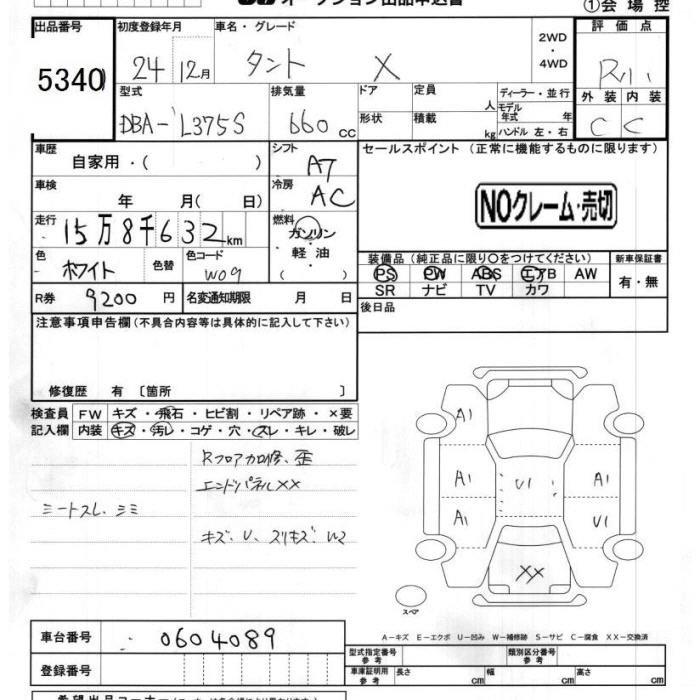 オークション出品申込書
①会場控
出品番号 初度登録年月 車名・グレード 評価点
5340 24 12月 タント X 2WD ・ 4WD R11
型式 排気量 ドア 定員 人 ディーラー・並行 外装 内装
DBA- L375S 660 CC 形状 積載 kg モデル年式 年 C C
ハンドル 左・右
車歴 自家用・( ) シフト AT セールスポイント (正常に機能するものに限ります)
車検 年 月( 日) 冷房 AC
NOクレーム・売切
走行 15万8千632km 燃料 ガソリン ・ 軽油 ( )
色 ホワイト 色替 色コード W09
装備品 (純正品に限り○をつけてください) 新車保証書
PS PW ABS エアB AW 有・無
SR ナビ TV カワ
R券 9200 円 名変通知期限 月 日 後日品
注意事項申告欄 (不具合内容等は具体的に記入して下さい)
修復歴 有 〔箇所 〕
検査員 FW キズ・飛石・ヒビ割・リペア跡・×要
記入欄 内装 キズ・汚レ・コゲ・穴・スレ・キレ・破レ
Rフロア加修、歪
エンドパネルXX
シートスレ、シミ
キズ、U、スリキズ、W2
A1
A1 U1 A1
A1 U1
XX
スペア
A−キズ E−エクボ U−凹み W−補修跡 S−サビ C−腐食 XX−交換済
車台番号 0604089
型式指定番号 参考 類別区分番号 参考
登録番号 車庫証明用 参考 長さ cm 幅 cm 高さ cm